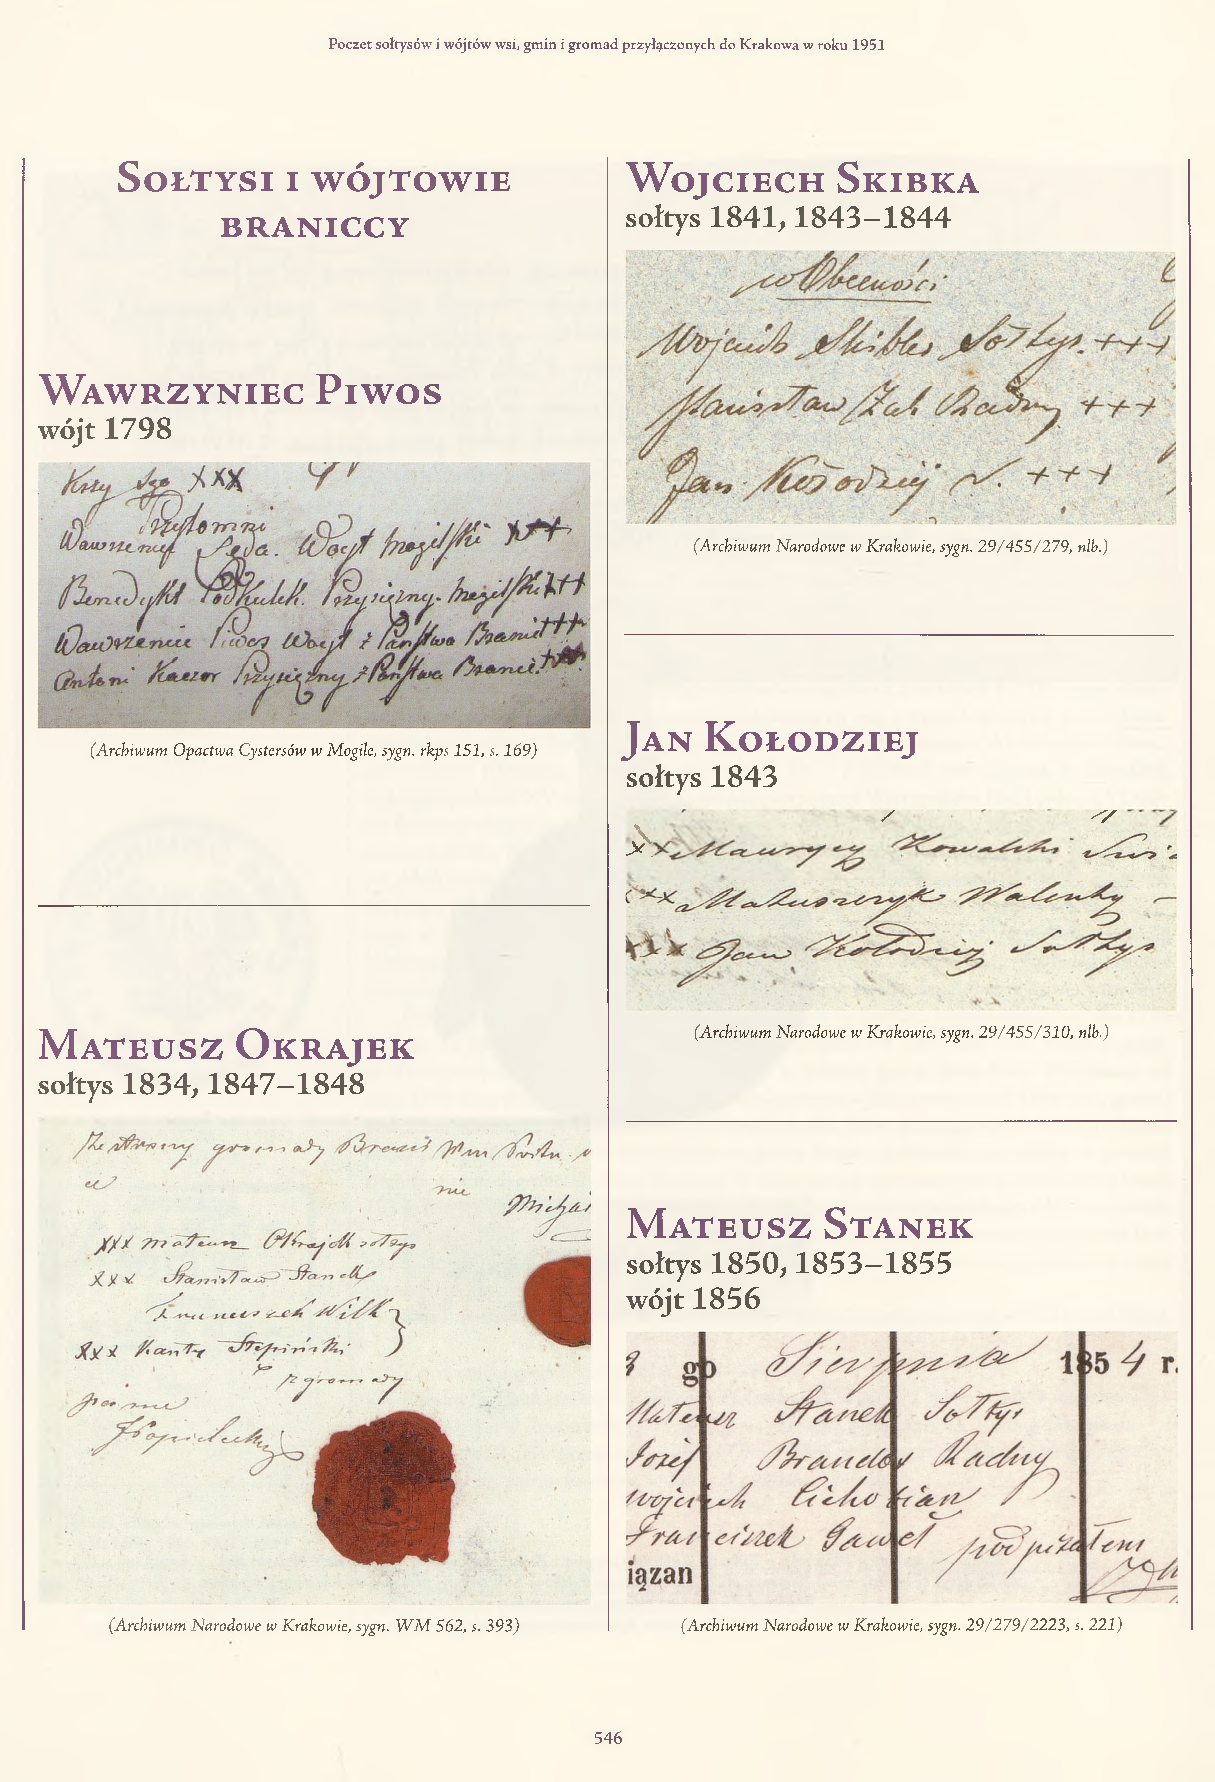 Poczet sołtysów i wójtów wsi, gmin i gromad przyłączonych do Krakowa w roku 1951
Sołtysi i wójtowie
braniccy
Wawrzyniec Piwos
wójt 1798
Krzy Sgo XXX
Przytomni
Wawrzeniec Sęda. Woyt Mogilski +++
Benedykt Podkulek. Przysięzny. Mogilski +++
Wawrzeniec Piwos Woyt z Państwa Branic +++
Antoni Kaczor Przysięzny z Państwa Branic. +++
(Archiwum Opactwa Cystersów w Mogile, sygn. rkps 151, s. 169)
Mateusz Okrajek
sołtys 1834, 1847–1848
Ze strony gromady Branic
nie
Michał
xxx mateusz Okrajek sołtys
xxx Stanisław Stanek
Franciszek Wilk
xxx Kanty Stępiński
z gromady
(Archiwum Narodowe w Krakowie, sygn. WM 562, s. 393)
Wojciech Skibka
sołtys 1841, 1843–1844
w Obecności
Wojciech Skibka Sołtys. +++
Stanisław Żak Radny +++
Jan Kołodziej S. +++
(Archiwum Narodowe w Krakowie, sygn. 29/455/279, nlb.)
Jan Kołodziej
sołtys 1843
xx Maurycy Kowalski
xxx Matuszczyk Walenty –
xxx Jan Kołodziej Sołtys
(Archiwum Narodowe w Krakowie, sygn. 29/455/310, nlb.)
Mateusz Stanek
sołtys 1850, 1853–1855
wójt 1856
3 go Sierpnia 1854 r.
Mateusz Stanek Sołtys
Józef Brandys Radny
wojciech Cichobian
Franciszek Gaweł podpisałem
iązan
(Archiwum Narodowe w Krakowie, sygn. 29/279/2223, s. 221)
546